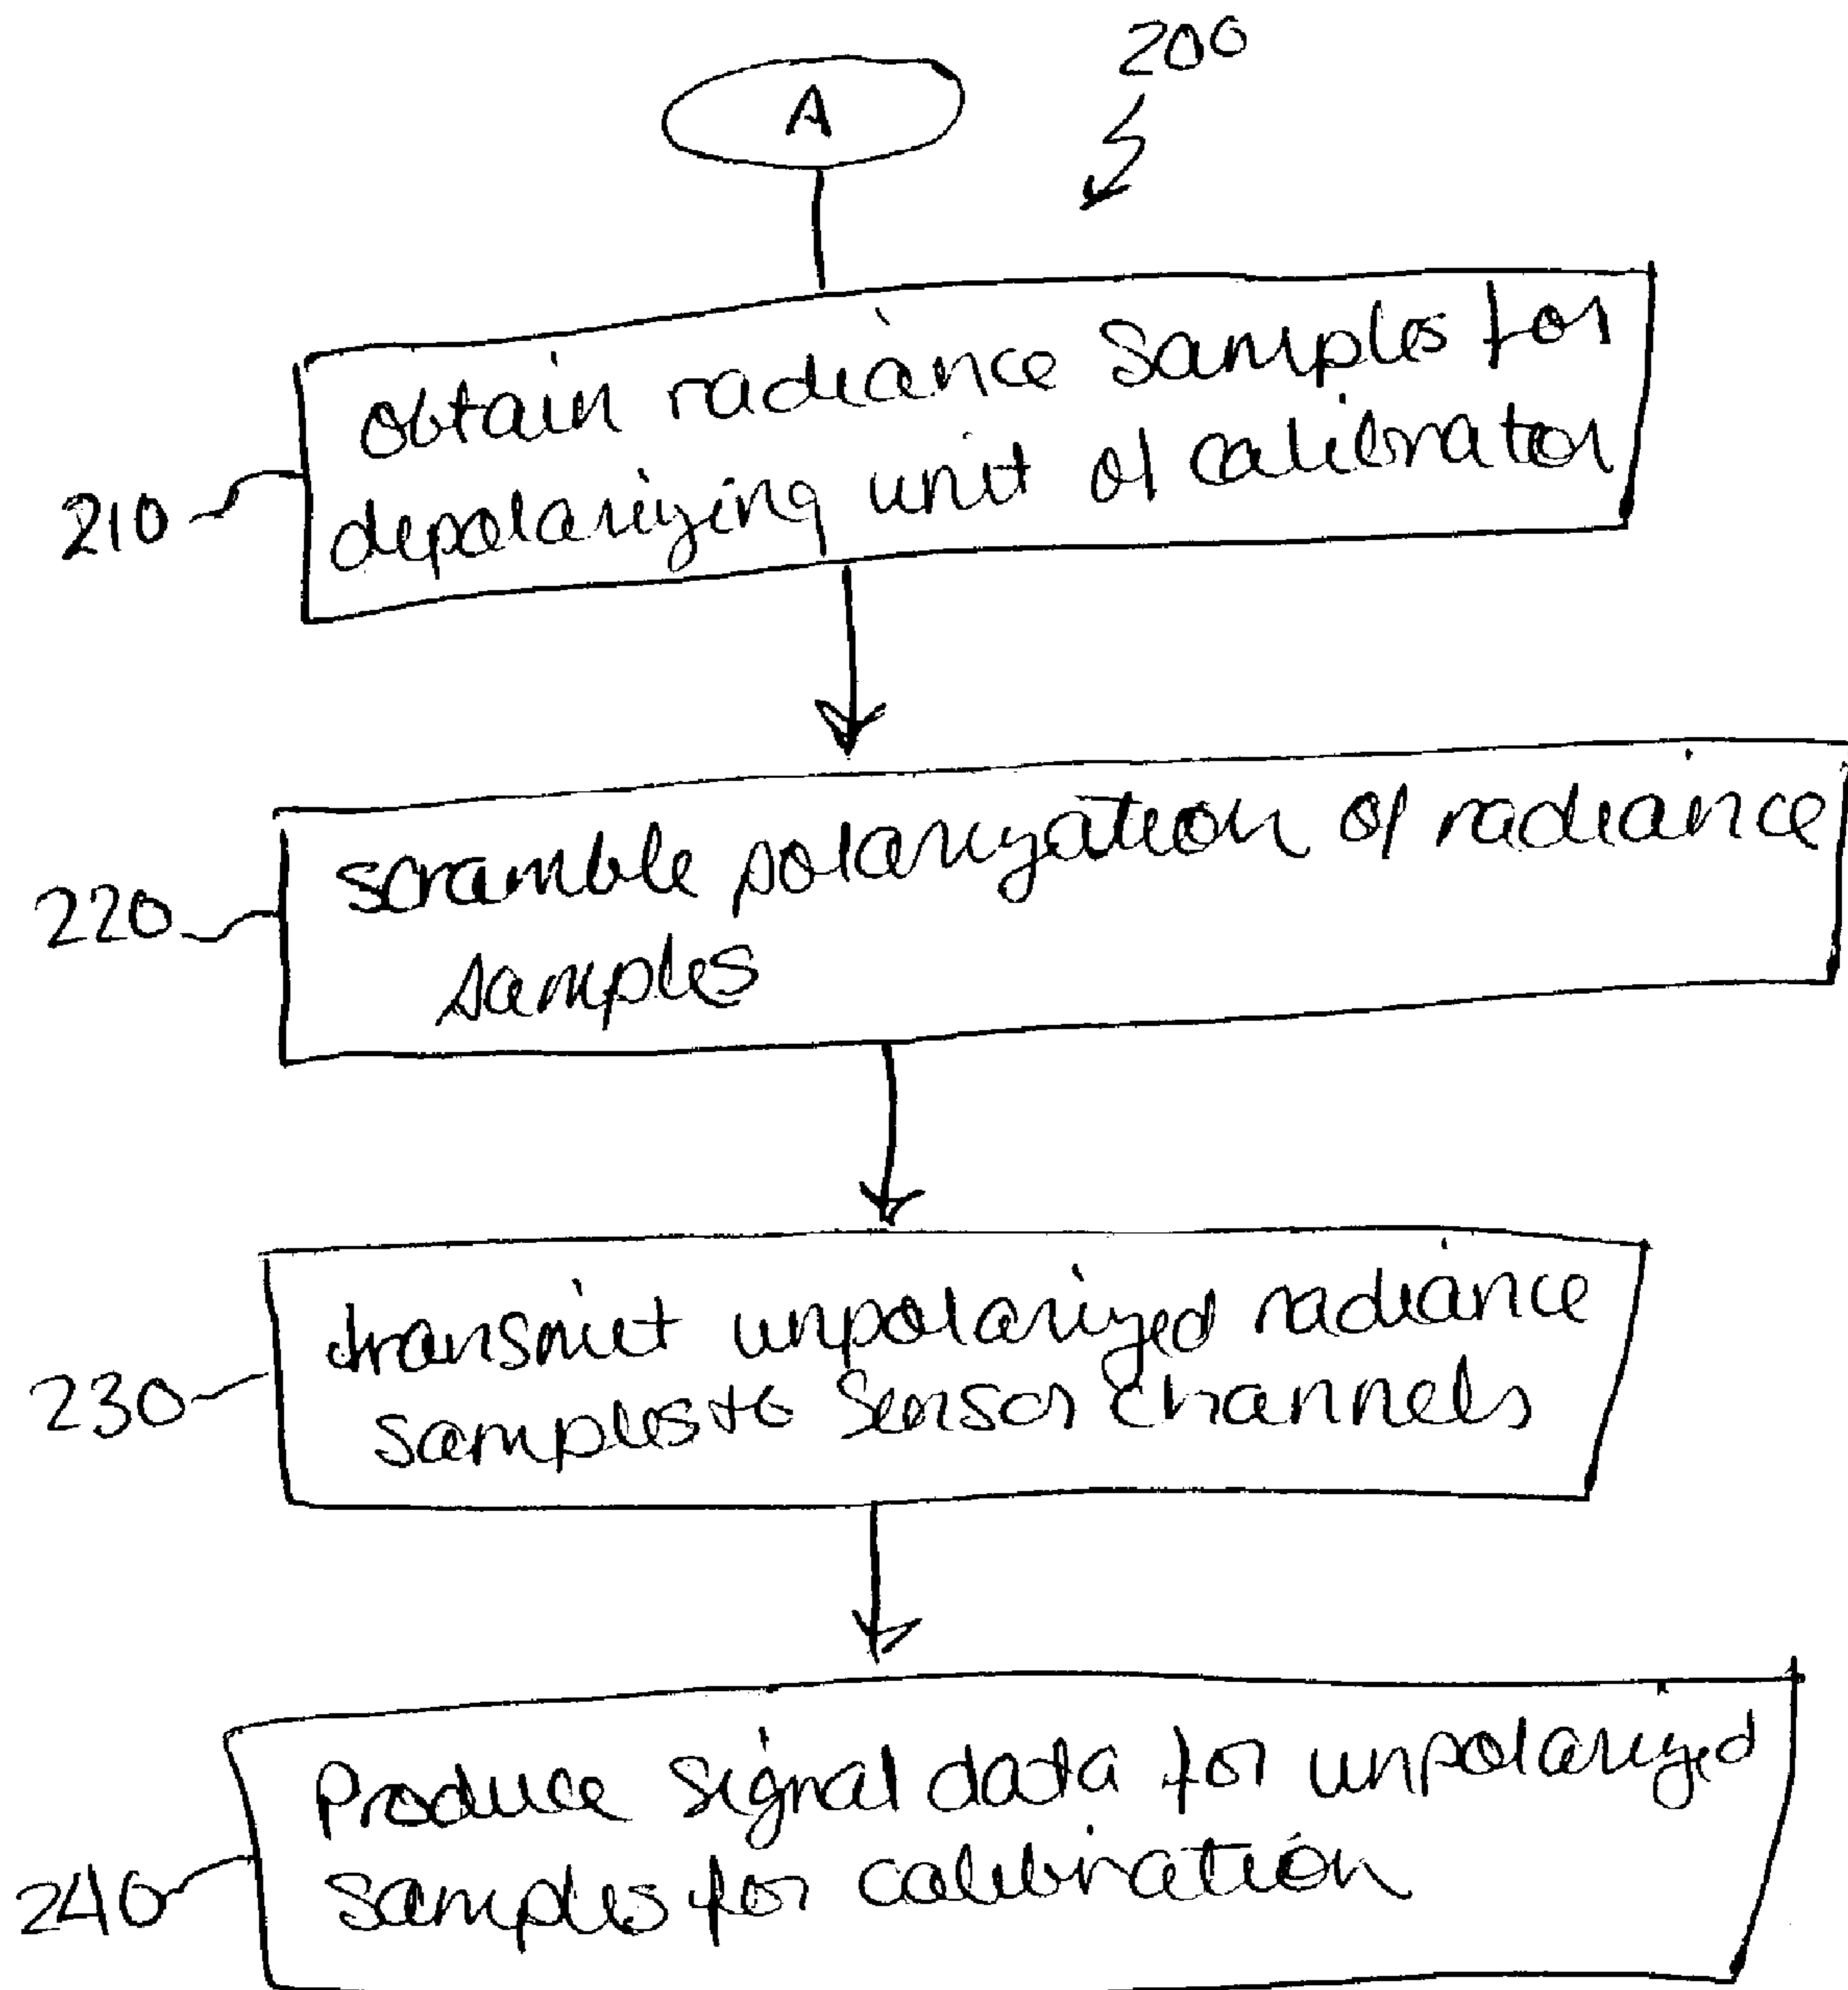 200
A
obtain radiance samples for
210
depolarizing unit of calibrator
scramble polarization of radiance
220
samples
transmit unpolarized radiance
230
samples to sensor channels
Produce signal data for unpolarized
240
samples for calibration